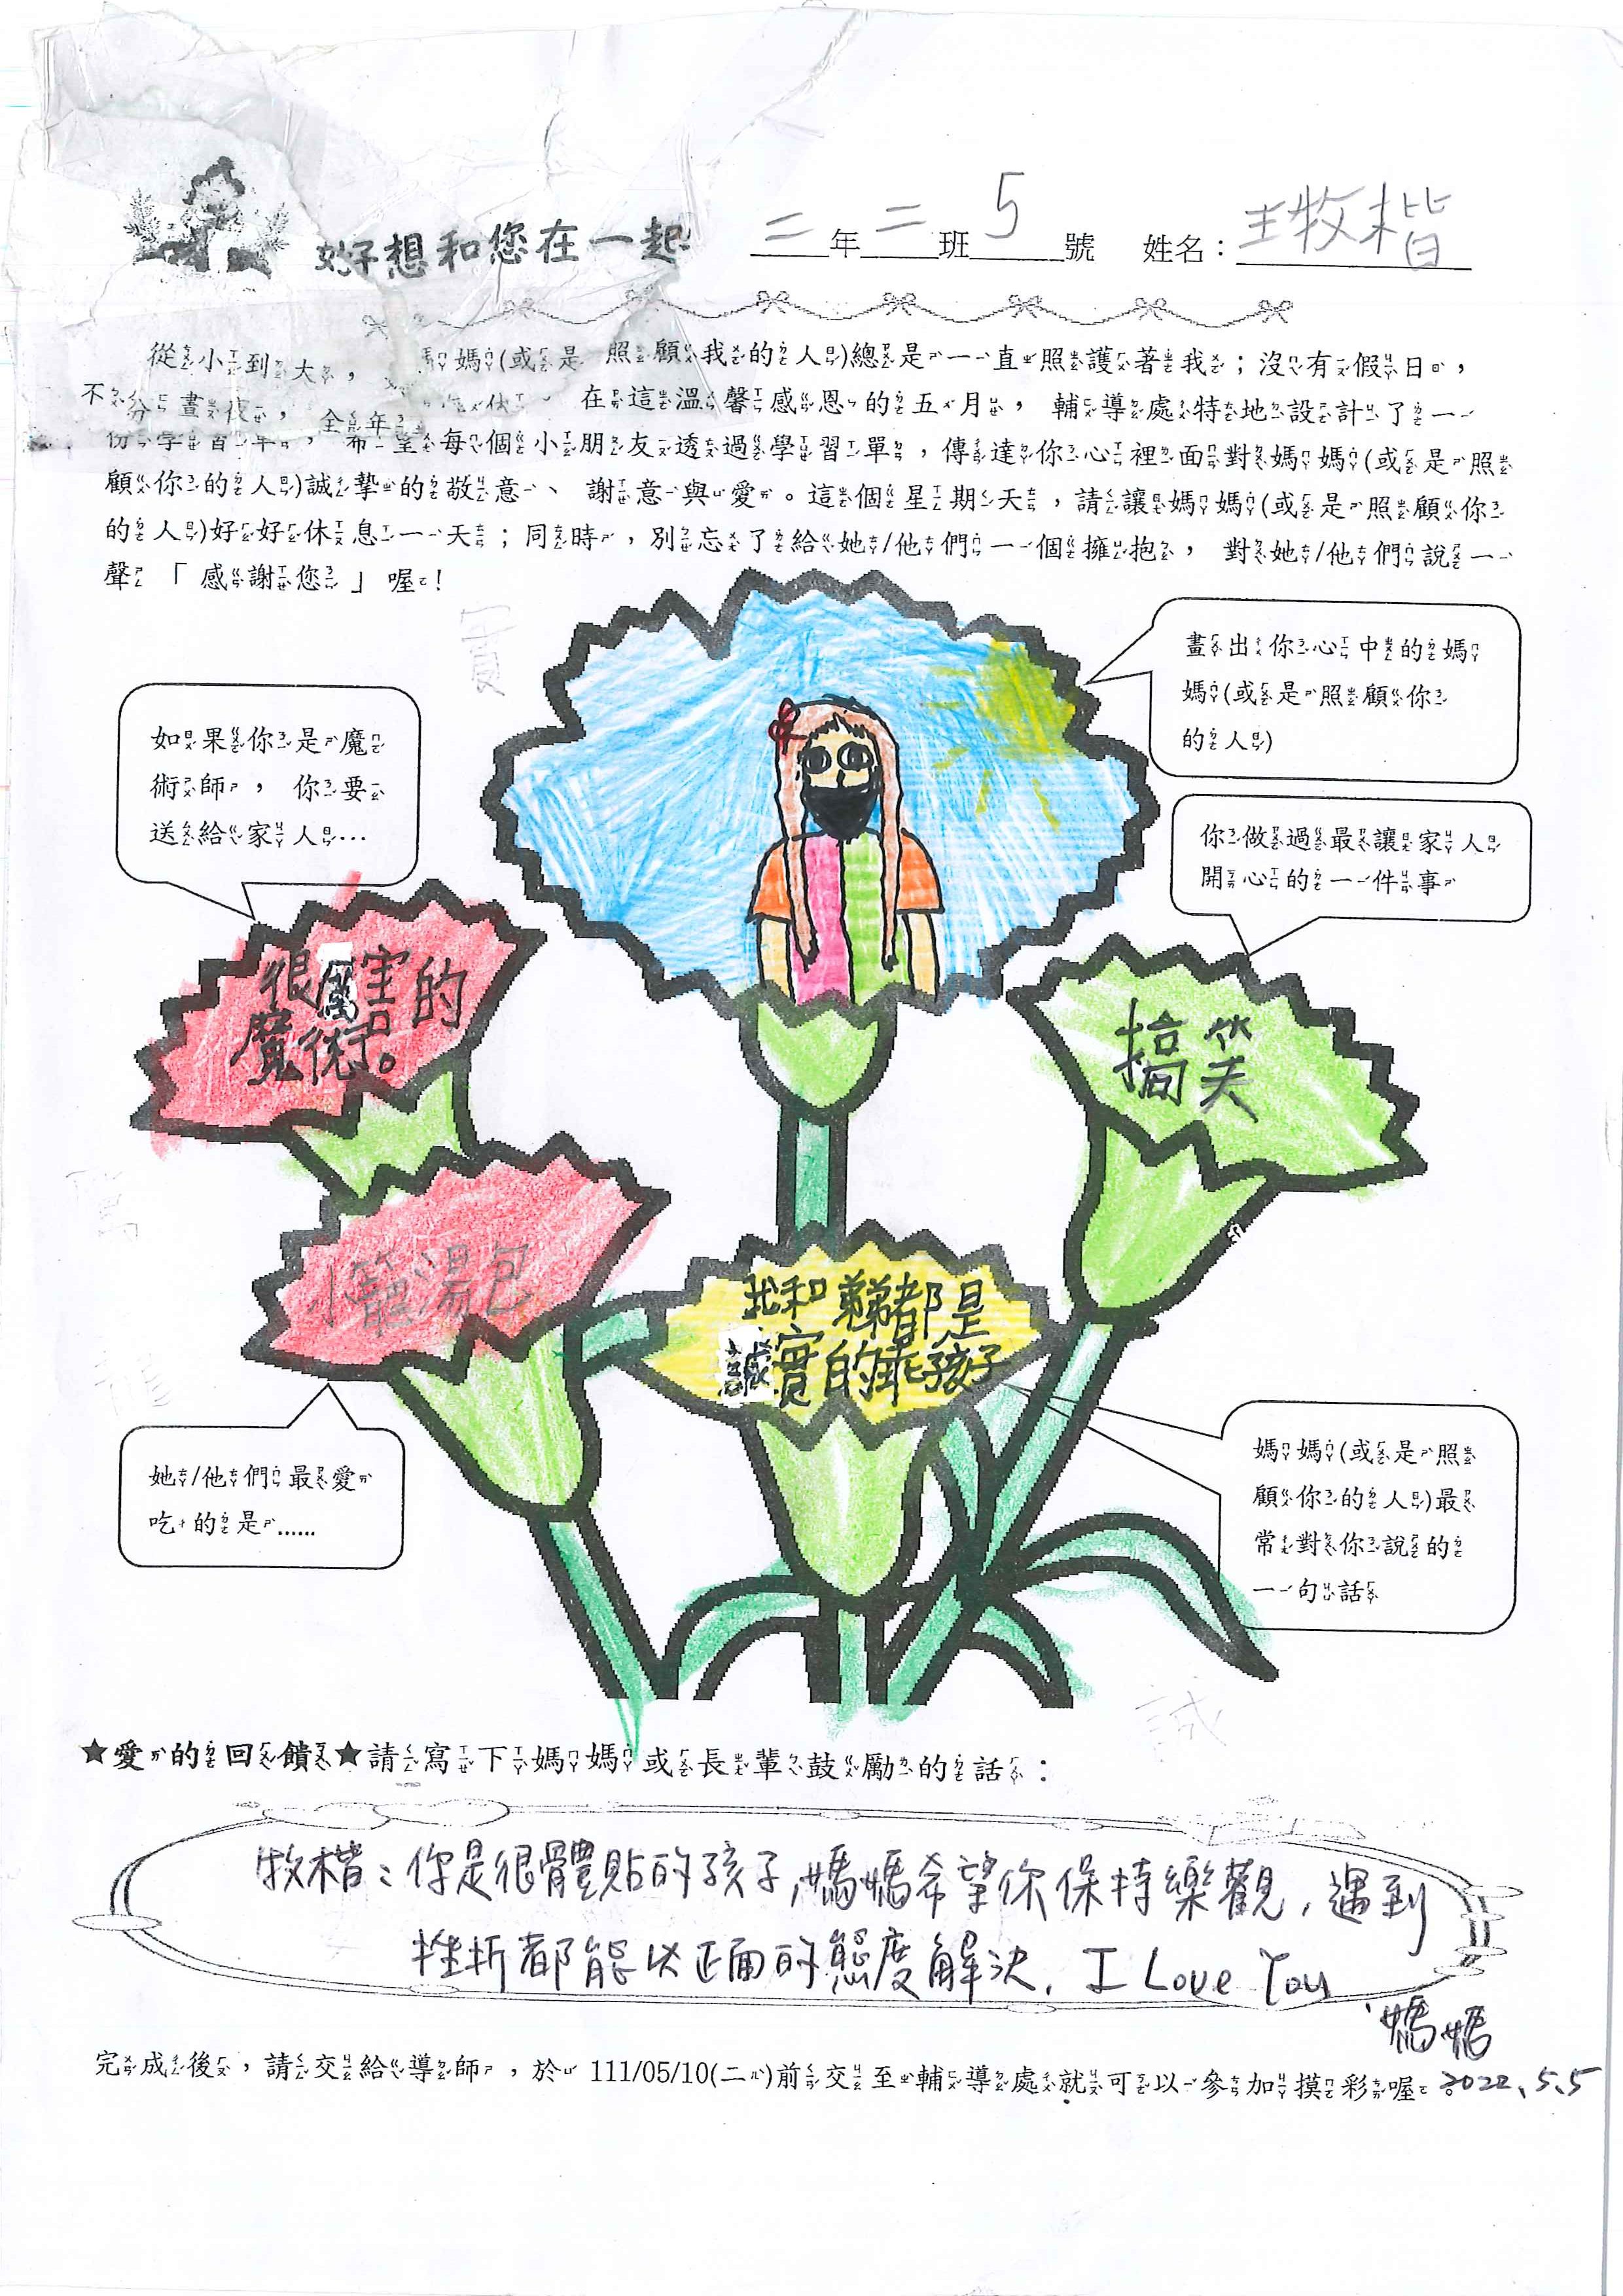 好想和您在一起
二年二班5號 姓名：王牧楷
從小到大，媽媽(或是照顧我的人)總是一直照護著我；沒有假日，
不分晝夜，全年 休。在這溫馨感恩的五月，輔導處特地設計了一
份學習單，希望每個小朋友透過學習單，傳達你心裡面對媽媽(或是照
顧你的人)誠摯的敬意、謝意與愛。這個星期天，請讓媽媽(或是照顧你
的人)好好休息一天；同時，別忘了給她/他們一個擁抱，對她/他們說一
聲「感謝您」喔！
畫出你心中的媽
媽(或是照顧你
的人)
如果你是魔
術師，你要
送給家人…
你做過最讓家人
開心的一件事
很厲害的
魔術。
搞笑
小籠湯包
我和弟弟都是
誠實的乖孩子
她/他們最愛
吃的是……
媽媽(或是照
顧你的人)最
常對你說的
一句話
★愛的回饋★請寫下媽媽或長輩鼓勵的話：
牧楷：你是很體貼的孩子,媽媽希望你保持樂觀,遇到
挫折都能以正面的態度解決. I Love You
媽媽
2022.5.5
完成後，請交給導師，於111/05/10(二)前交至輔導處就可以參加摸彩喔。